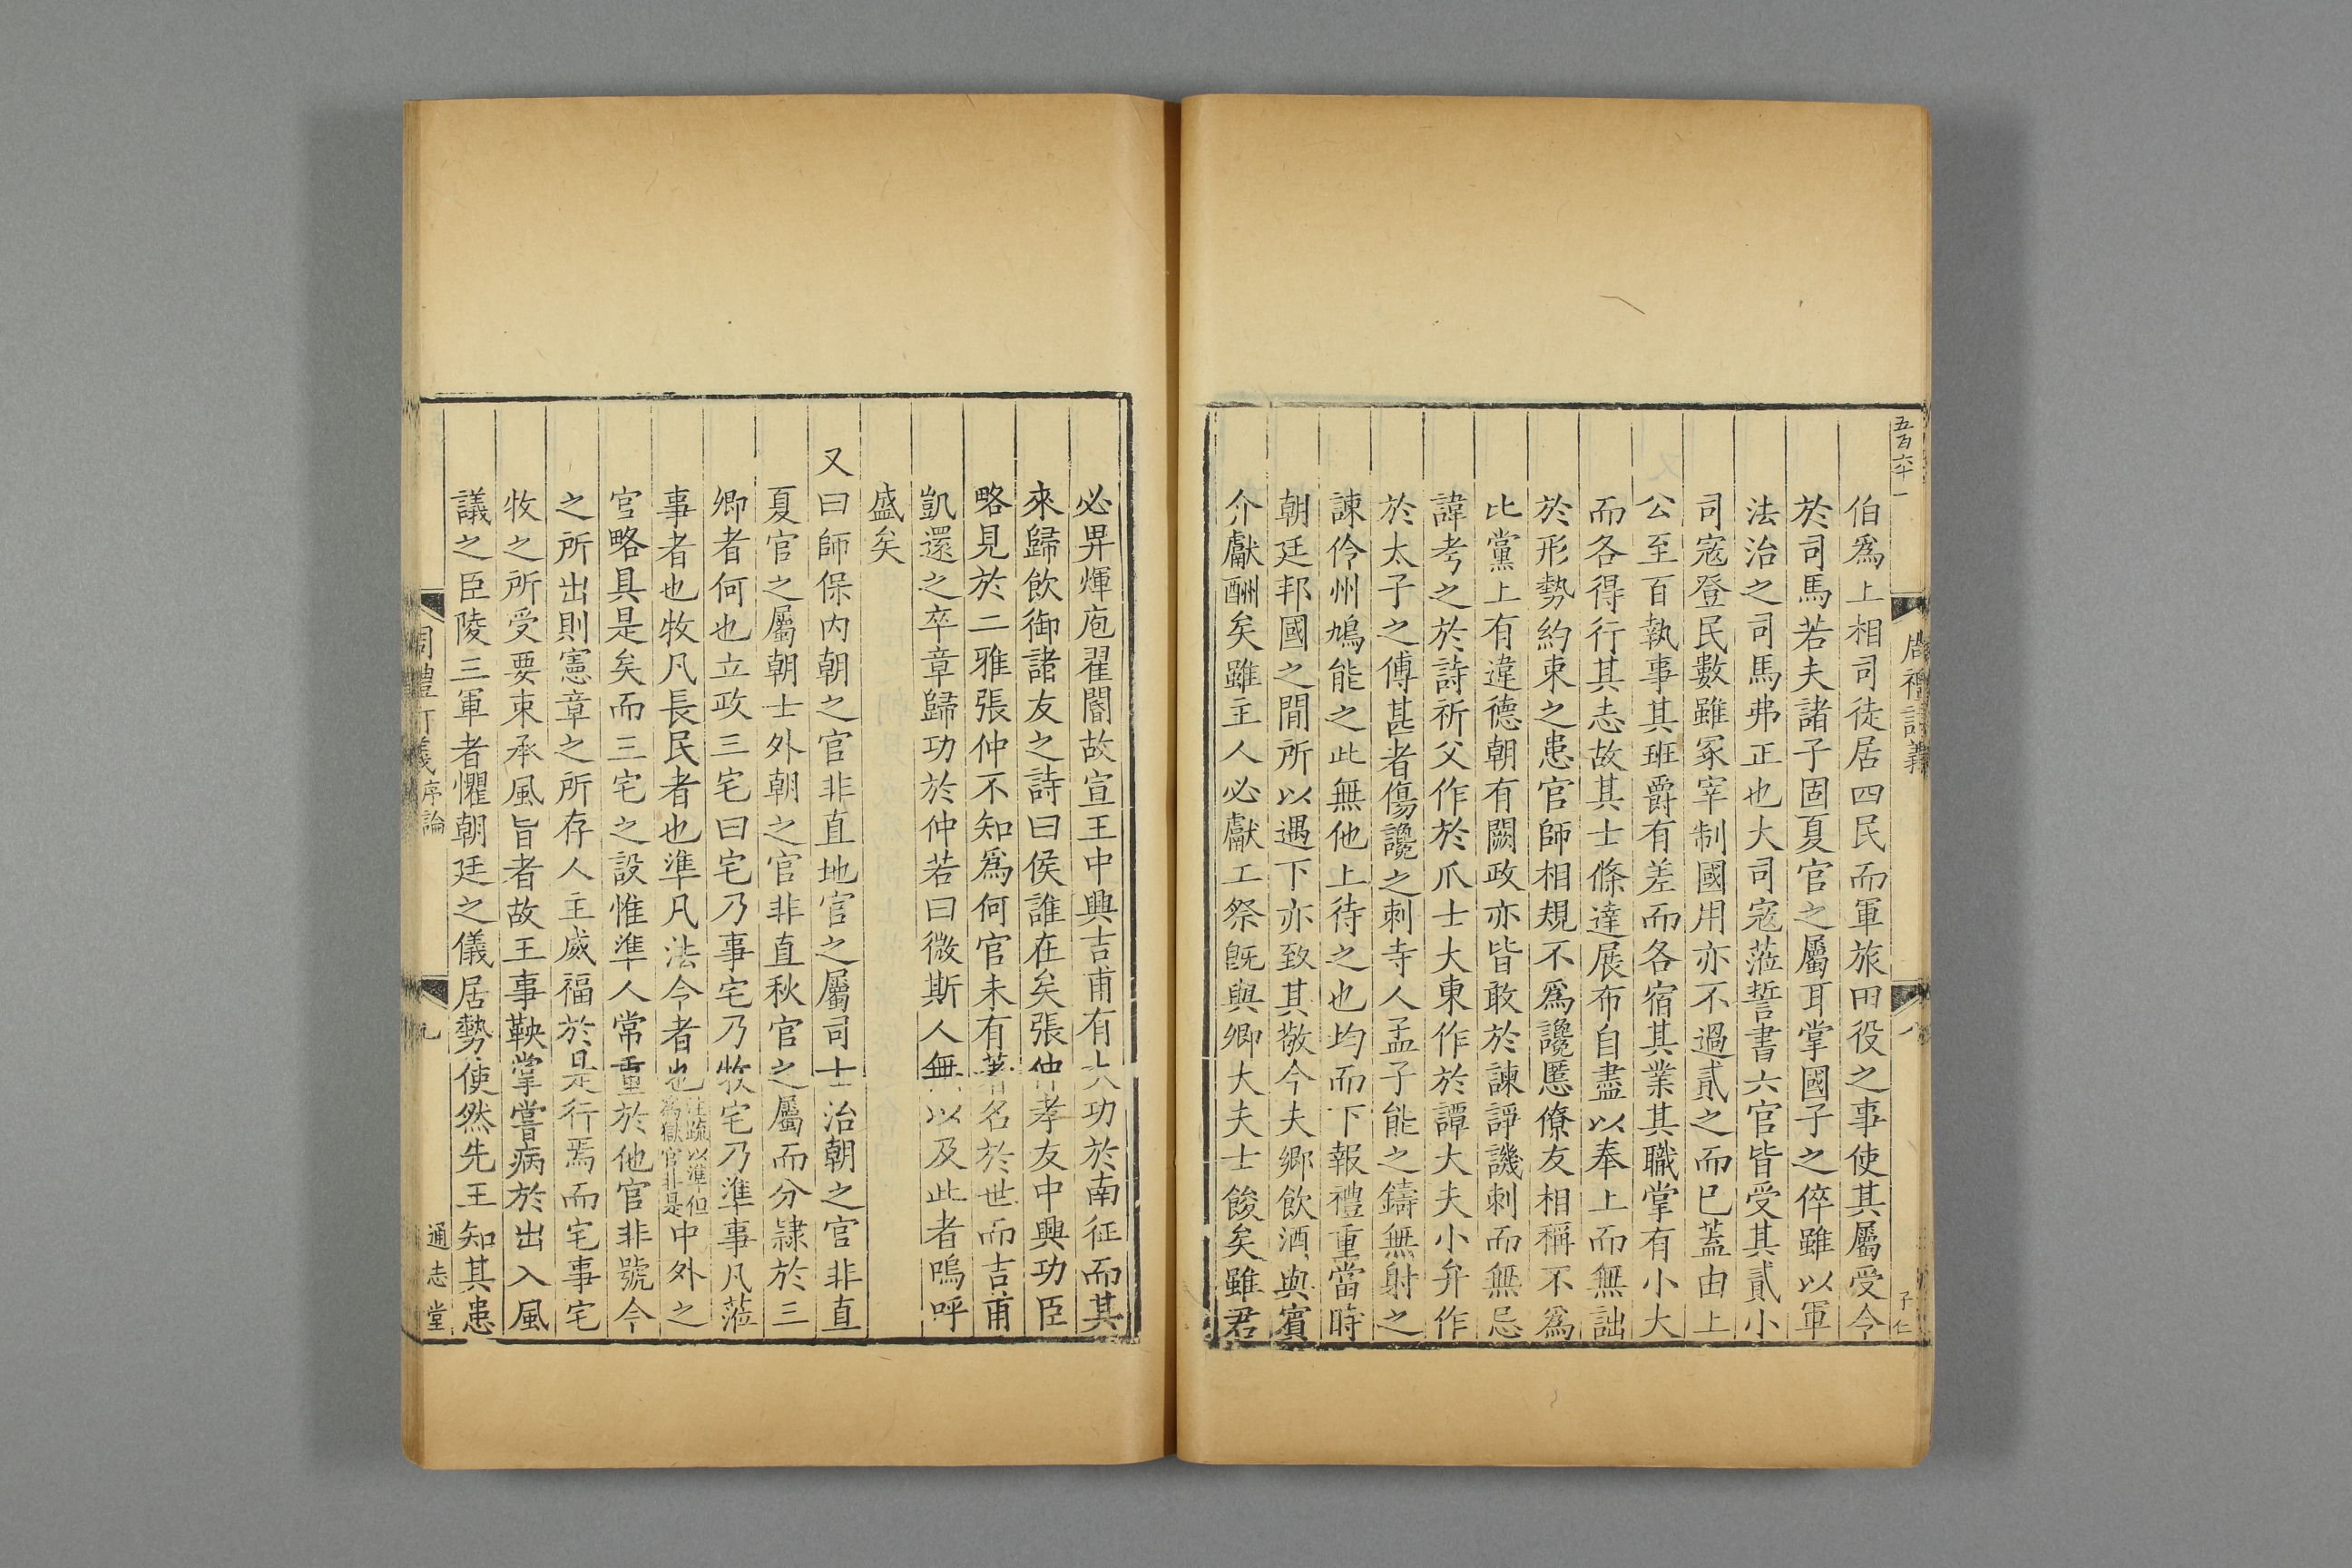 五百六十一
周禮訂義
八
子仁
伯爲上相司徒居四民而軍旅田役之事使其屬受令
於司馬若夫諸子固夏官之屬耳掌國子之倅雖以軍
法治之司馬弗正也大司寇蒞誓書六官皆受其貳小
司寇登民數雖冢宰制國用亦不過貳之而已蓋由上
公至百執事其班爵有差而各宿其業其職掌有小大
而各得行其志故其士條達展布自盡以奉上而無詘
於形勢約束之患官師相規不爲讒慝僚友相稱不爲
比黨上有違德朝有闕政亦皆敢於諫諍譏刺而無忌
諱考之於詩祈父作於爪士大東作於譚大夫小弁作
於太子之傅甚者傷讒之刺寺人孟子能之鑄無射之
諫伶州鳩能之此無他上待之也均而下報禮重當時
朝廷邦國之閒所以遇下亦致其敬今夫鄉飲酒與賓
介獻酬矣雖主人必獻工祭旣與卿大夫士餕矣雖君
必畀煇庖翟閽故宣王中興吉甫有大功於南征而其
來歸飲御諸友之詩曰侯誰在矣張仲孝友中興功臣
略見於二雅張仲不知爲何官未有著名於世而吉甫
凱還之卒章歸功於仲若曰微斯人無以及此者嗚呼
盛矣
又曰師保內朝之官非直地官之屬司士治朝之官非直
夏官之屬朝士外朝之官非直秋官之屬而分隸於三
卿者何也立政三宅曰宅乃事宅乃牧宅乃準事凡蒞
事者也牧凡長民者也準凡法令者也注疏以準但爲獄官非是中外之
官略具是矣而三宅之設惟準人常重於他官非號令
之所出則憲章之所存人主威福於是行焉而宅事宅
牧之所受要束承風旨者故王事鞅掌嘗病於出入風
議之臣陵三軍者懼朝廷之儀居勢使然先王知其患
周禮訂義序論
九
通志堂